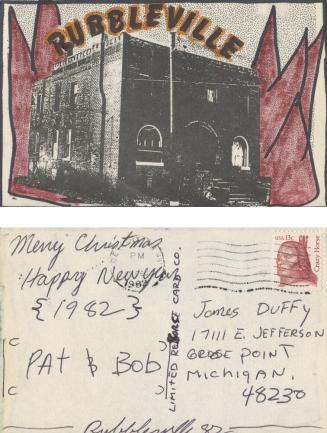 RUBBLEVILLE
Merry Christmas
Happy New Year
{1982}
PAT & BOB
LIMITED RELEASE CARD CO.
PM
1982
USA 13c
Crazy Horse
James DUFFY
17111 E. JEFFERSON
GROSE POINT
MICHIGAN,
48230
Rubbleville 82